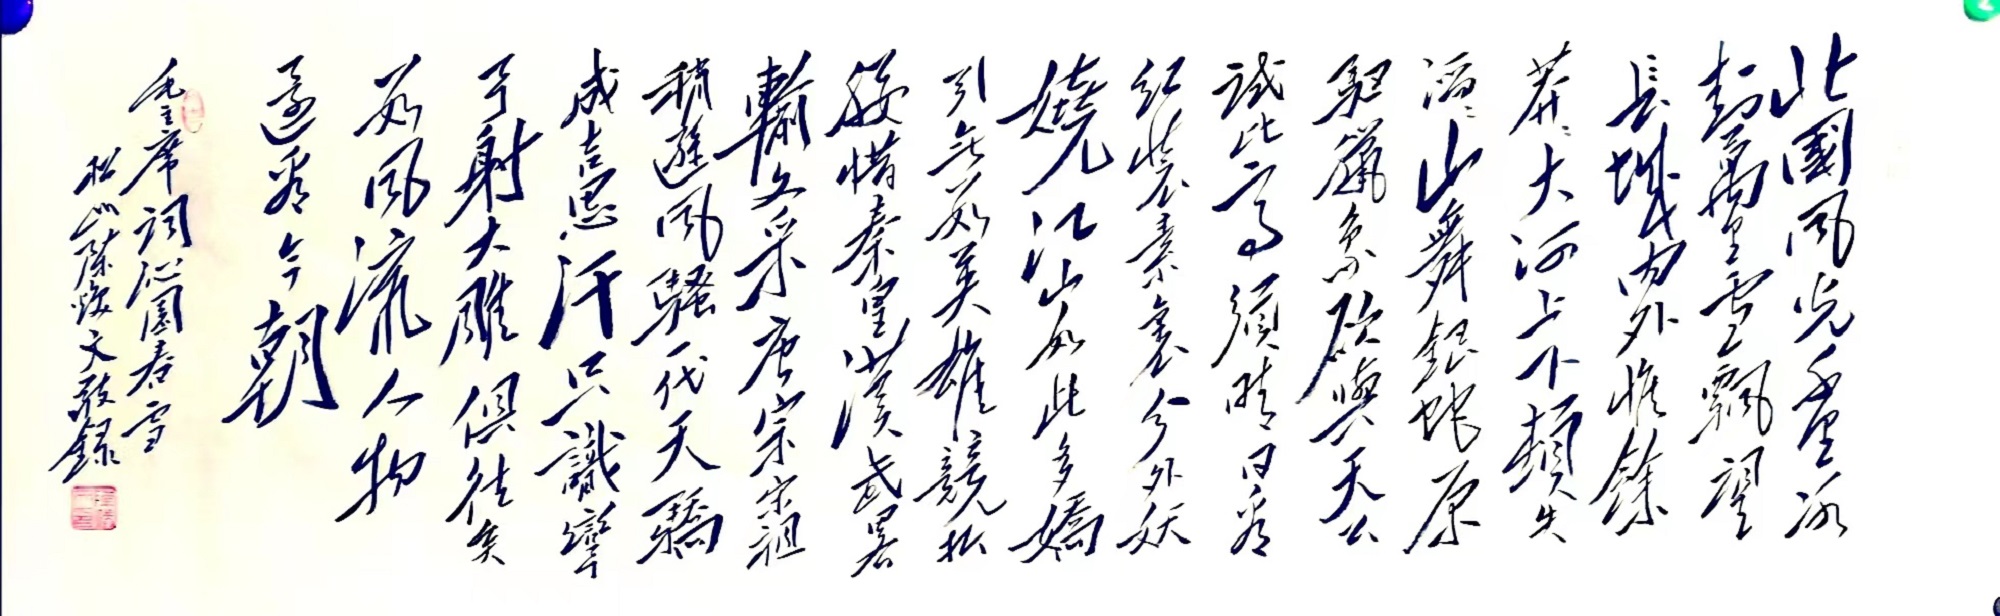 北國風光千里冰
封萬里雪飄望
長城内外惟餘
莽〻大河上下頓失
滔〻山舞銀蛇原
馳臘象欲與天公
試比高須晴日看
紅裝素裹分外妖
嬈江山如此多嬌
引無數英雄競折
腰惜秦皇漢武畧
輸文采唐宗宋祖
稍遜風騷一代天驕
成吉思汗只識彎
弓射大雕俱往矣
數風流人物
還看今朝
毛主席詞沁園春雪
松山陳煥文敬録